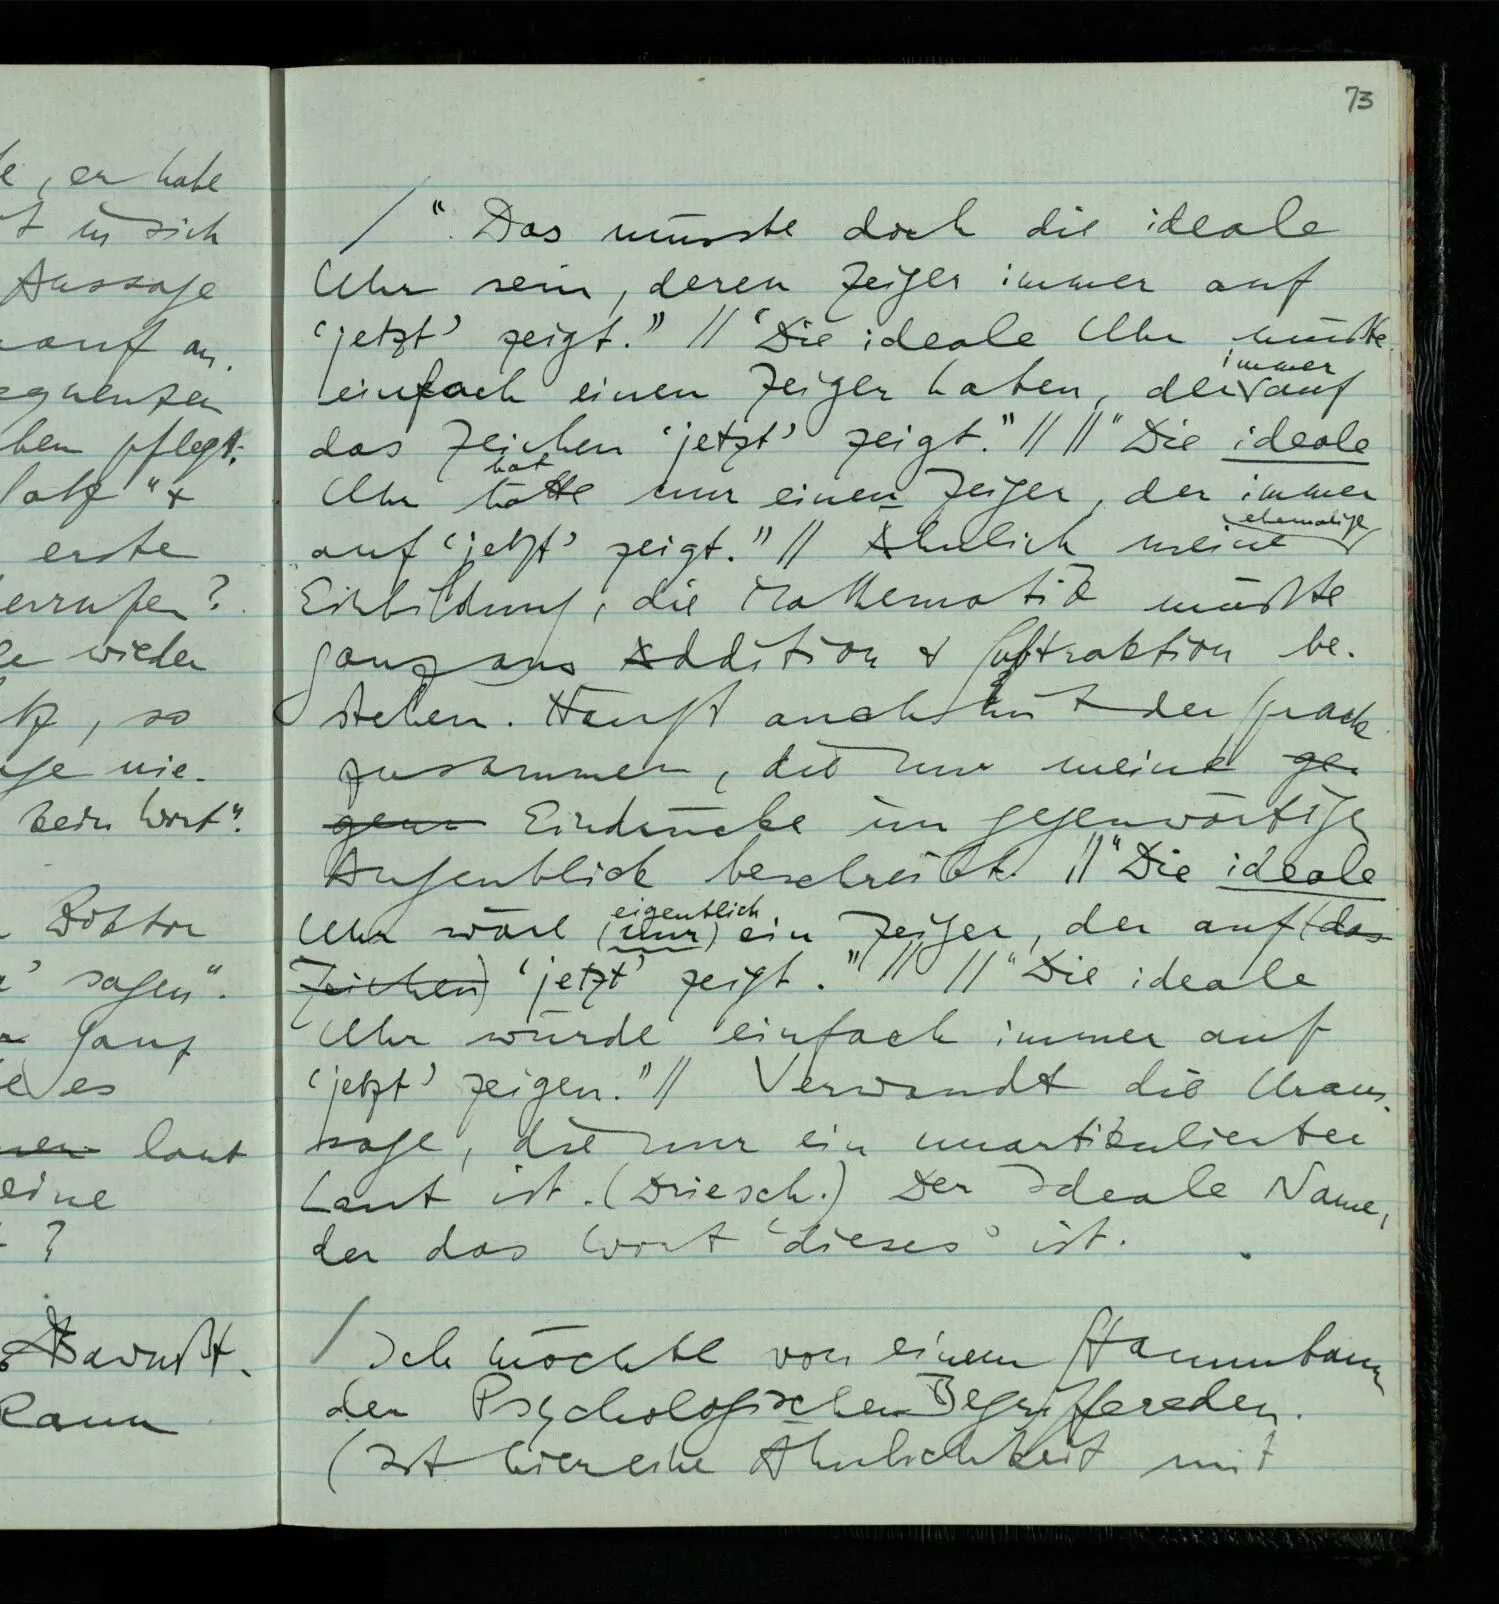 e, er habe
t in sich
Aussage
auf an,
equenzen
hen pflegt.
latz" &
erste
errufen?
le wieder
tz, so
age nie.
kein Wort".
Doktor
' sagen".
ganz
e es
laut
eine
?
Bewußt-
kann
73
/ "Das müsste doch die ideale
Uhr sein, deren Zeiger immer auf
'jetzt' zeigt." // "Die ideale Uhr müßte
immer
einfach einen Zeiger haben, der auf
das Zeichen 'jetzt' zeigt." // // "Die ideale
hat
Uhr hätte nur einen Zeiger, der immer
ehemalige
auf 'jetzt' zeigt." // Ähnlich meine
Einbildung, die Mathematik müßte
ganz aus Addition & Subtraktion be-
stehen. Hängt auch mit der Sprache
zusammen, die nur meine ge-
genw Eindrücke im gegenwärtigen
Augenblick beschreibt. // "Die ideale
eigentlich
Uhr wäre (nur) ein Zeiger, der auf (das
Zeichen) 'jetzt' zeigt." // // "Die ideale
Uhr würde einfach immer auf
'jetzt' zeigen." // Verwandt die Uraus-
sage, die nur ein unartikulierter
Laut ist. (Driesch.) Der Ideale Name,
der das Wort 'dieses' ist.
/ Ich möchte von einem Stammbaum
der Psychologischen Begriffe reden.
(Ist hier eine Ähnlichkeit mit